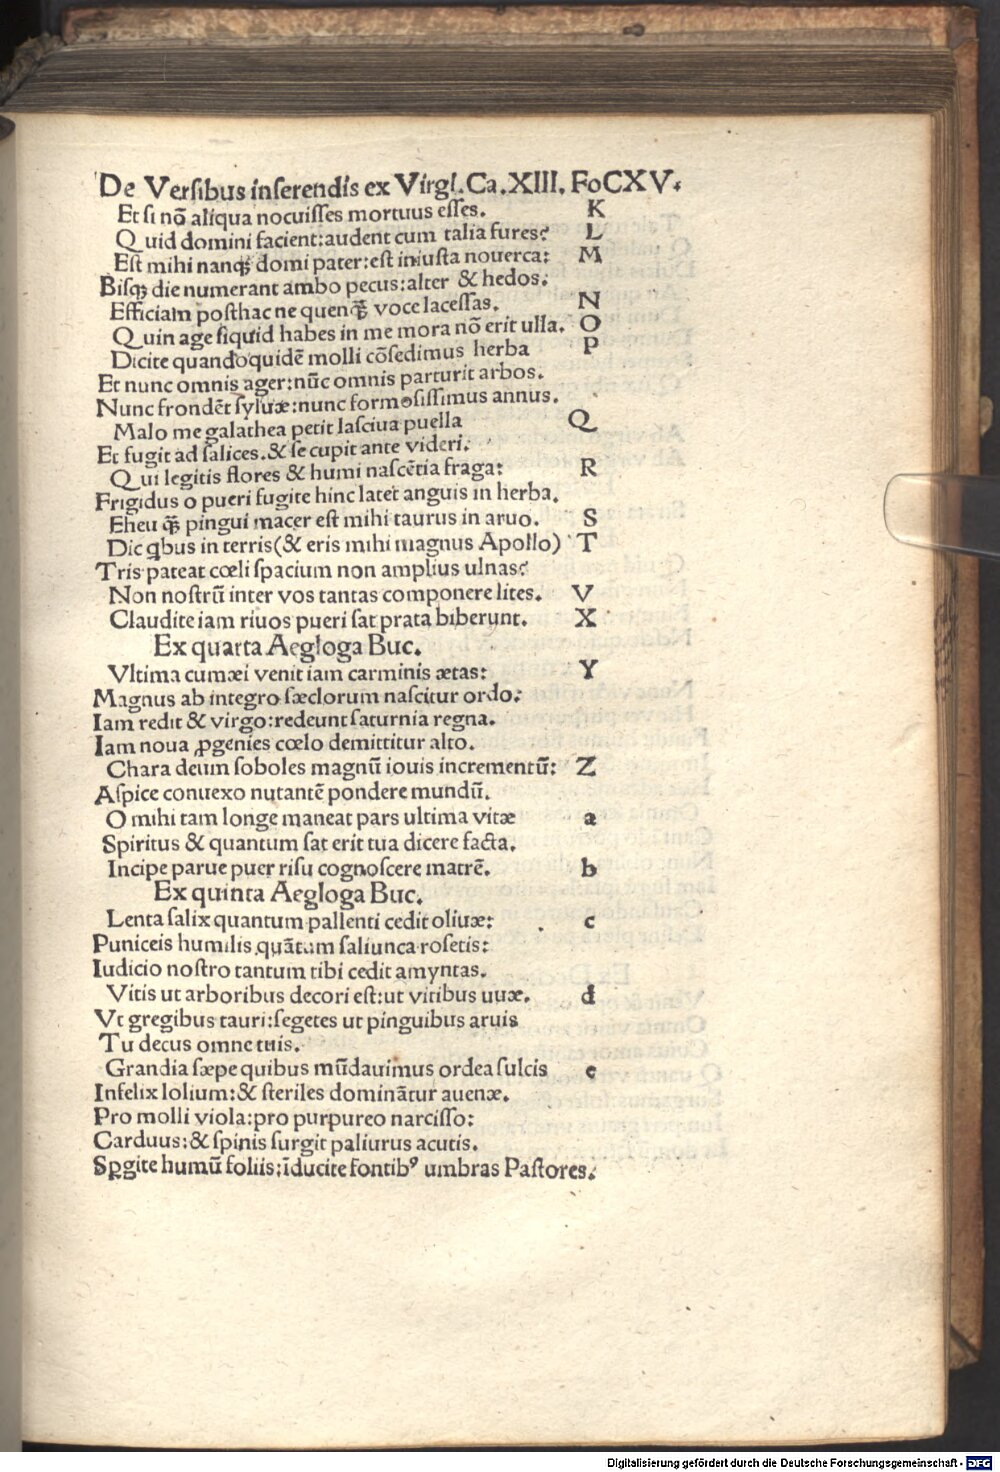 De Versibus inserendis ex Virgl. Ca. XIII. Fo CXV.
Et si nō aliqua nocuisses mortuus esses. K
Quid domini facient: audent cum talia fures? L
Est mihi nanq; domi pater: est iniusta nouerca: M
Bisq; die numerant ambo pecus: alter & hedos.
Efficiam posthac ne quenq̄ voce lacessas. N
Quin age siquid habes in me mora nō erit ulla. O
Dicite quandoquidē molli cōsedimus herba P
Et nunc omnis ager: nūc omnis parturit arbos.
Nunc frondēt syluæ: nunc formosissimus annus.
Malo me galathea petit lasciua puella Q
Et fugit ad salices. & se cupit ante videri.
Qui legitis flores & humi nascētia fraga: R
Frigidus o pueri fugite hinc latet anguis in herba.
Eheu q̄ pingui macer est mihi taurus in aruo. S
Dic qbus in terris (& eris mihi magnus Apollo) T
Tris pateat cœli spacium non amplius ulnas?
Non nostrū inter vos tantas componere lites. V
Claudite iam riuos pueri sat prata biberunt. X
Ex quarta Aegloga Buc.
Vltima cumæi venit iam carminis ætas: Y
Magnus ab integro sæclorum nascitur ordo:
Iam redit & virgo: redeunt saturnia regna.
Iam noua ꝓgenies cœlo demittitur alto.
Chara deum soboles magnū iouis incrementū: Z
Aspice conuexo nutantē pondere mundū.
O mihi tam longe maneat pars ultima vitæ a
Spiritus & quantum sat erit tua dicere facta.
Incipe parue puer risu cognoscere matrē. b
Ex quinta Aegloga Buc.
Lenta salix quantum pallenti cedit oliuæ: c
Puniceis humilis quātum saliunca rosetis:
Iudicio nostro tantum tibi cedit amyntas.
Vitis ut arboribus decori est: ut vitibus uuæ. d
Vt gregibus tauri: segetes ut pinguibus aruis
Tu decus omne tuis.
Grandia sæpe quibus mūdauimus ordea sulcis e
Infelix lolium: & steriles dominātur auenæ.
Pro molli viola: pro purpureo narcisso:
Carduus: & spinis surgit paliurus acutis.
Spgite humū foliis: īducite fontibꝰ umbras Pastores.
Digitalisierung gefördert durch die Deutsche Forschungsgemeinschaft - DFG